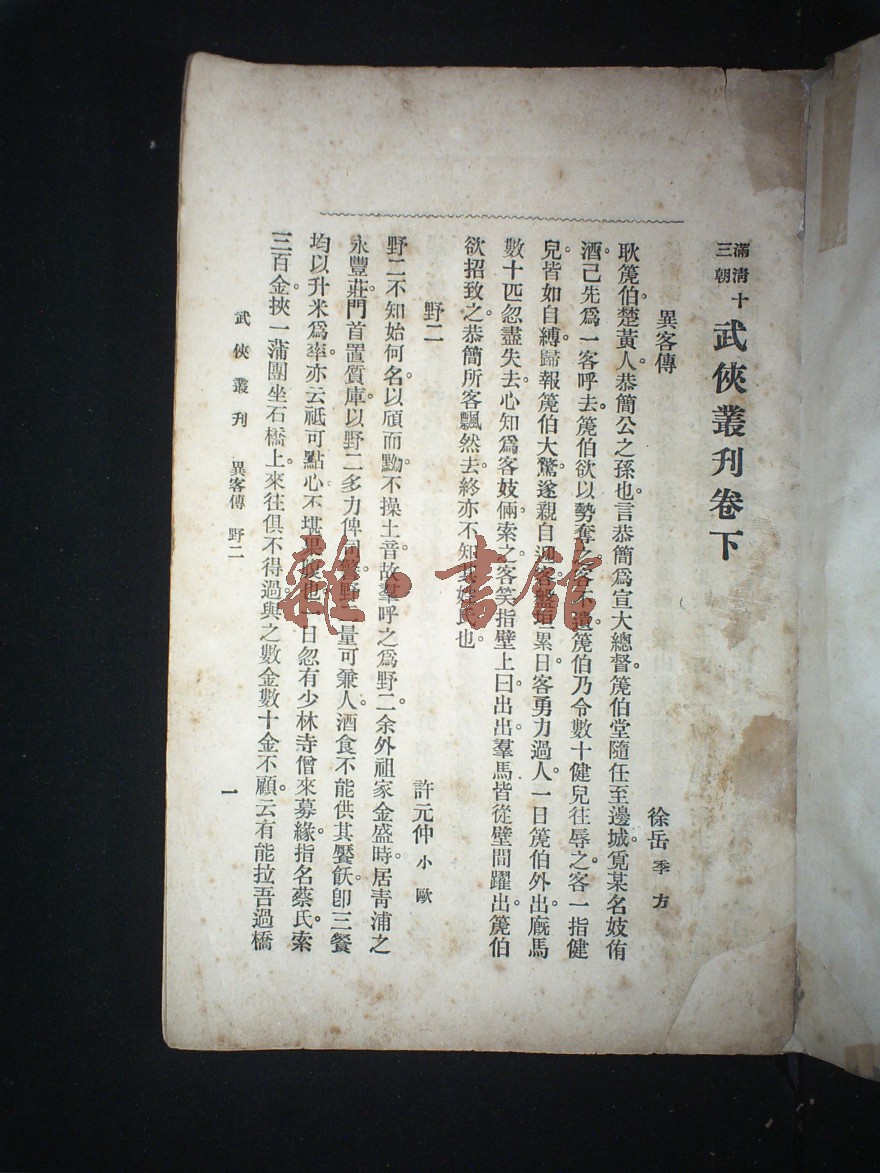 滿清十三朝 武俠叢刊卷下
異客傳 徐岳 季方
耿篼伯。楚黃人。恭簡公之孫也。言恭簡爲宣大總督。篼伯堂隨任至邊城。覓某名妓侑
酒。己先爲一客呼去。篼伯欲以勢奪之。客不遣。篼伯乃令數十健兒往辱之。客一指健
兒。皆如自縛。歸報篼伯大驚。遂親自迎客。盤桓累日。客勇力過人。一日篼伯外出。廐馬
數十匹忽盡失去。心知爲客妓倆。索之。客笑指壁上曰。出出。羣馬皆從壁間躍出。篼伯
欲招致之。恭簡所客飄然去。終亦不知其姓氏也。
野二 許元仲 小歐
野二不知始何名。以頎而黝。不操土音。故羣呼之爲野二。余外祖家金盛時。居青浦之
永豐莊。門首置質庫。以野二多力。俾司 野二量可兼人。酒食不能供其饜飫。卽三餐
均以升米爲率。亦云祗可點心。不堪果腹也。一日忽有少林寺僧來募緣。指名蔡氏。索
三百金。挾一蒲團坐石橋上。來往俱不得過。與之數金數十金不顧。云有能拉吾過橋
武俠叢刊 異客傳 野二 一
雜·書館